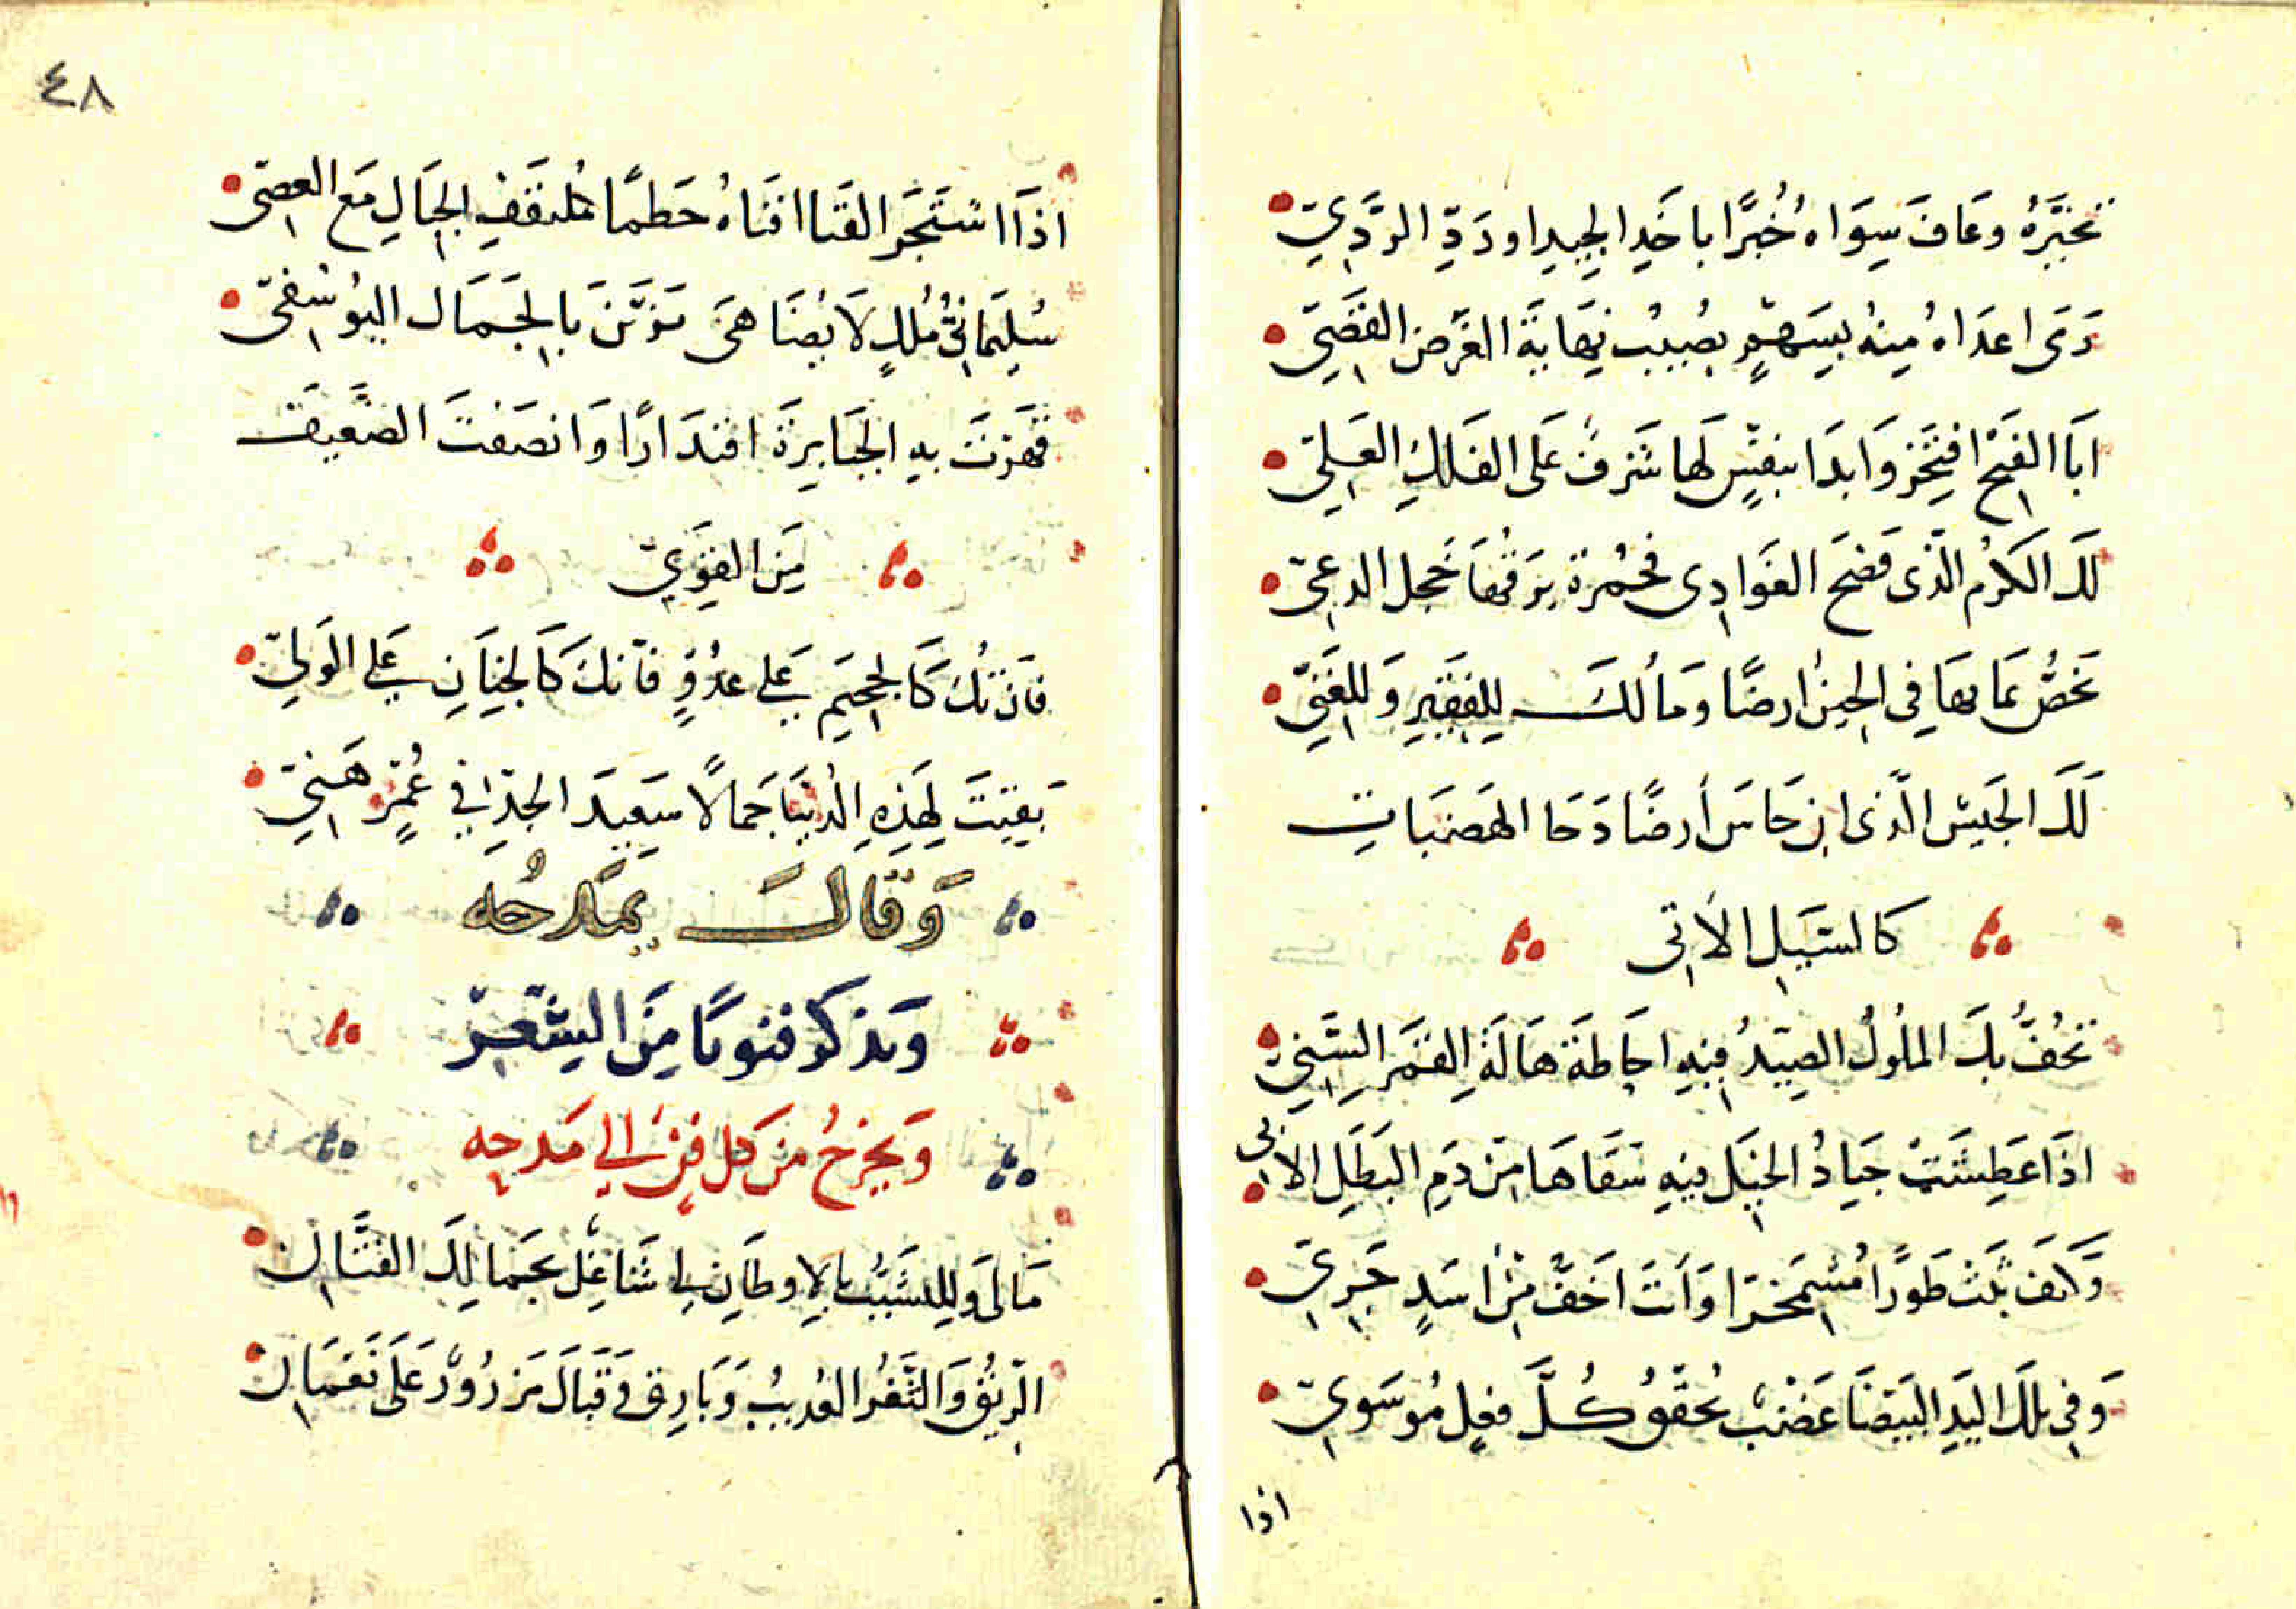 تخيَّرَهُ وعَافَ سِوَاهُ خُبرًا باخَدِ الجيدِ اورَدِّ الرَّدِيّ
رَمَى اعدَاهُ مِنهُ بِسَهمٍ يصُيبُ نِهَايَةَ الغَرضِ القَصِيّ
ابَا الفَتحِ افتَخِر وَابدَا بنفسٍ لهَا شَرفٌ عَلى الفَلكِ العَلىّ
لكَ الكَرمُ الّذى فَضحَ الغَوَادِى فحُمْرة بَرقُها خَجل الدعىّ
تخُصُّ بمَابهَا في الحينِ ارضًا وَمالُكَ لِلفَقيرِ وَلِلغَنىّ
لَكَ الجَيش الَّذى ان حَاسَ أرضًا دَحَا الهَضبَاتِ
كالسَيلِ الأتى
تحُفُّ بِكَ الملُوكُ الصِيدُ فيهِ احَاطَة هَالَةِ القمَر السَنىّ
اذَا عَطِشَتْ جيَادُ الخَيل فيهِ سَقَاهَا مِن دَمِ البَطَلِ الابى
وَكَيفَ ثَلَث طَورًا مُشمَخرًا وَأنتَ اخَفّ مِن اسَدٍ جَرىّ
وَفى تلكَ اليَدِ البَيضَا عَضْبٌ يحُقّقُ كُلَّ فعِلٍ مُوسَوىّ
اذا
٤٨
اذَا اشتَجَر القَنا افنَاهُ حَطمًا تلقفِ الحِبَالِ مَع العِصىّ
سُليَمانىُّ مُلكٍ لاَ يُضَاهىَ تزَيّنَ بالجَمَال اليُوسُفىّ
قَهرتَ بهِ الجَبَابِرَةَ اقتدَارًا وَانصَفتَ الضعّيفَ
مِنَ القوَىّ
فاَن تكُ كَالجحيم عَلى عدُوٍّ فاّنكَ كَالجنَانِ عَلى الوَلىّ
بَقيتَ لِهَذِهِ الدُنيَا جَمالاً سَعِيدَ الجدّ في عُمرٍ هَنىّ
وَقَالَ يَمَدحُهُ
وَيذكر فنونًا مِنَ الشّعرْ
وَيخرجُ من كل فنٍ الى مَدحِهِ
مَالى وَللتشَبُّبِ بالاوطَانِ لى شَاغِل بجَمالِكَ الفَتَّانِ
الرّيقُ وَالثَّغرُ العُذيبُ وَبَارِق وَقَبَالَ مَزرُورٌ عَلَى نَعمَانِ